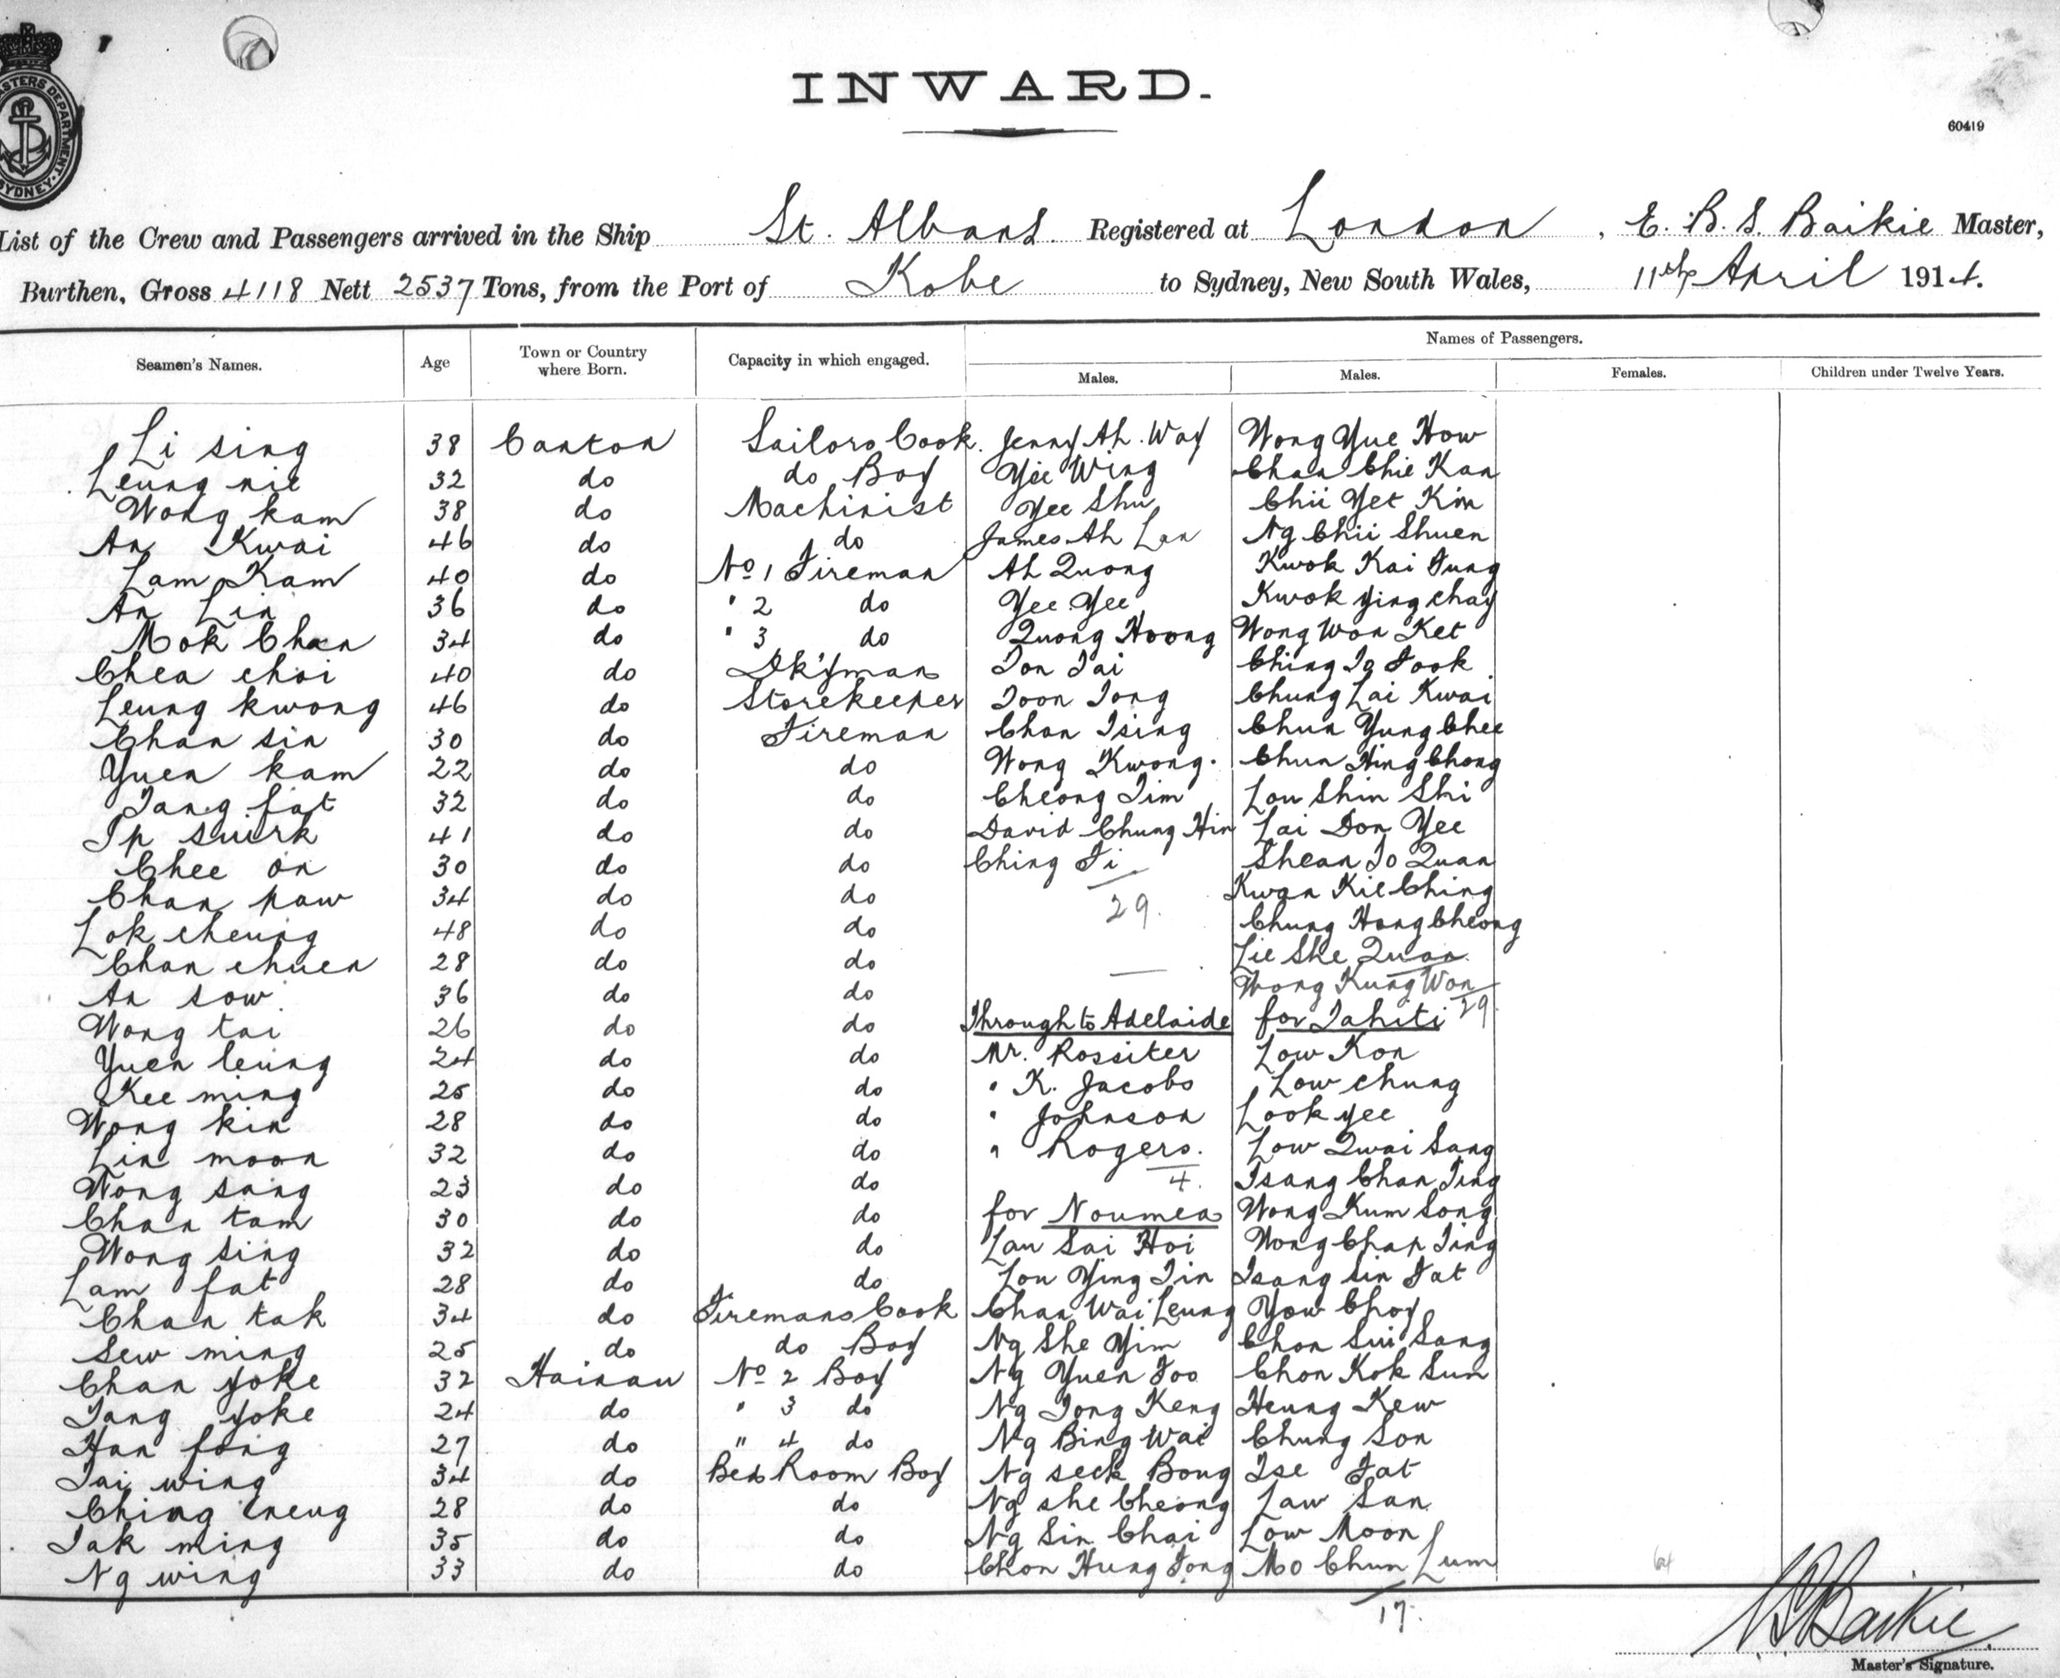 INWARD.
60419
MASTERS DEPARTMENT. SYDNEY.
List of the Crew and Passengers arrived in the Ship St. Albans. Registered at London, E. B. S. Baikie Master,
Burthen, Gross 4118 Nett 2537 Tons, from the Port of Kobe to Sydney, New South Wales, 11th April 1914.
Names of Passengers.
Seamen's Names. Age Town or Country where Born. Capacity in which engaged. Males. Males. Females. Children under Twelve Years.
Li sing 38 Canton Sailors Cook. Jenny Ah. Way Wong Yue How
Leung nie 32 do do Boy Yee Wing Chan Chie Kan
Wong kam 38 do Machinist Yee Shu Chii Yet Kim
An Kwai 46 do do James Ah Lan Ng Chii Shuen
Lam Kam 40 do No 1 Fireman Ah Quong Kwok Kai Fung
An Lin 36 do " 2 do Yee Yee Kwok Ying Chay
Mok Chan 34 do " 3 do Quong Hoong Wong Won Ket
Chea choi 40 do Dk'yman Ton Tai Ching To Fook
Leung kwong 46 do Storekeeper Toon Tong Chung Lai Kwai
Chan sin 30 do Fireman Chan Tsing Chun Yung Chee
Yuen kam 22 do do Wong Kwong. Chun Hing Chong
Tang fat 32 do do Cheong Tim Lou Shin Shi
Ip suirk 41 do do David Chung Hin Lai Don Yee
Chee on 30 do do Ching Fi Shean To Quan
Chan paw 34 do do 29. Kwan Kie Ching
Lok cheung 48 do do Chung Hong Cheong
Chan chuen 28 do do Lie She Quan
An sow 36 do do Wong Kung Won 29.
Wong tai 26 do do Through to Adelaide for Tahiti
Yuen leung 24 do do Mr. Rossiter Low Kon
Kee ming 25 do do " K. Jacobs Low Chung
Wong kin 28 do do " Johnson Look yee
Lin moon 32 do do " Rogers. Low Quai Sang
Wong sang 23 do do 4. Tsang Chan Ting
Chan tam 30 do do for Noumea Wong Kum Song
Wong sing 32 do do Lau Sai Hoi Wong Chap Ting
Lam fat 28 do do Lou Ying Tin Tsang Sin Fat
Chan tak 34 do Firemans Cook Chan Wai Leung Yow Choy
Sew ming 25 do do Boy Ng She Yim Chon Sui Sang
Chan yoke 32 Hainau No 2 Boy Ng Yuen Foo Chon Kok Sun
Tang yoke 24 do " 3 do Ng Tong Keng Heung Kew
Han fong 27 do " 4 do Ng Bing Wai Chung Son
Tai wing 34 do Bed Room Boy Ng seck Bong Tse Fat
Ching cneug 28 do do Ng she Cheong Law San
Tak ming 35 do do Ng Sin Chai Low Moon
Ng wing 33 do do Chon Hung Tong Mo Chun Lum
64
17.
Baikie.
Master's Signature.